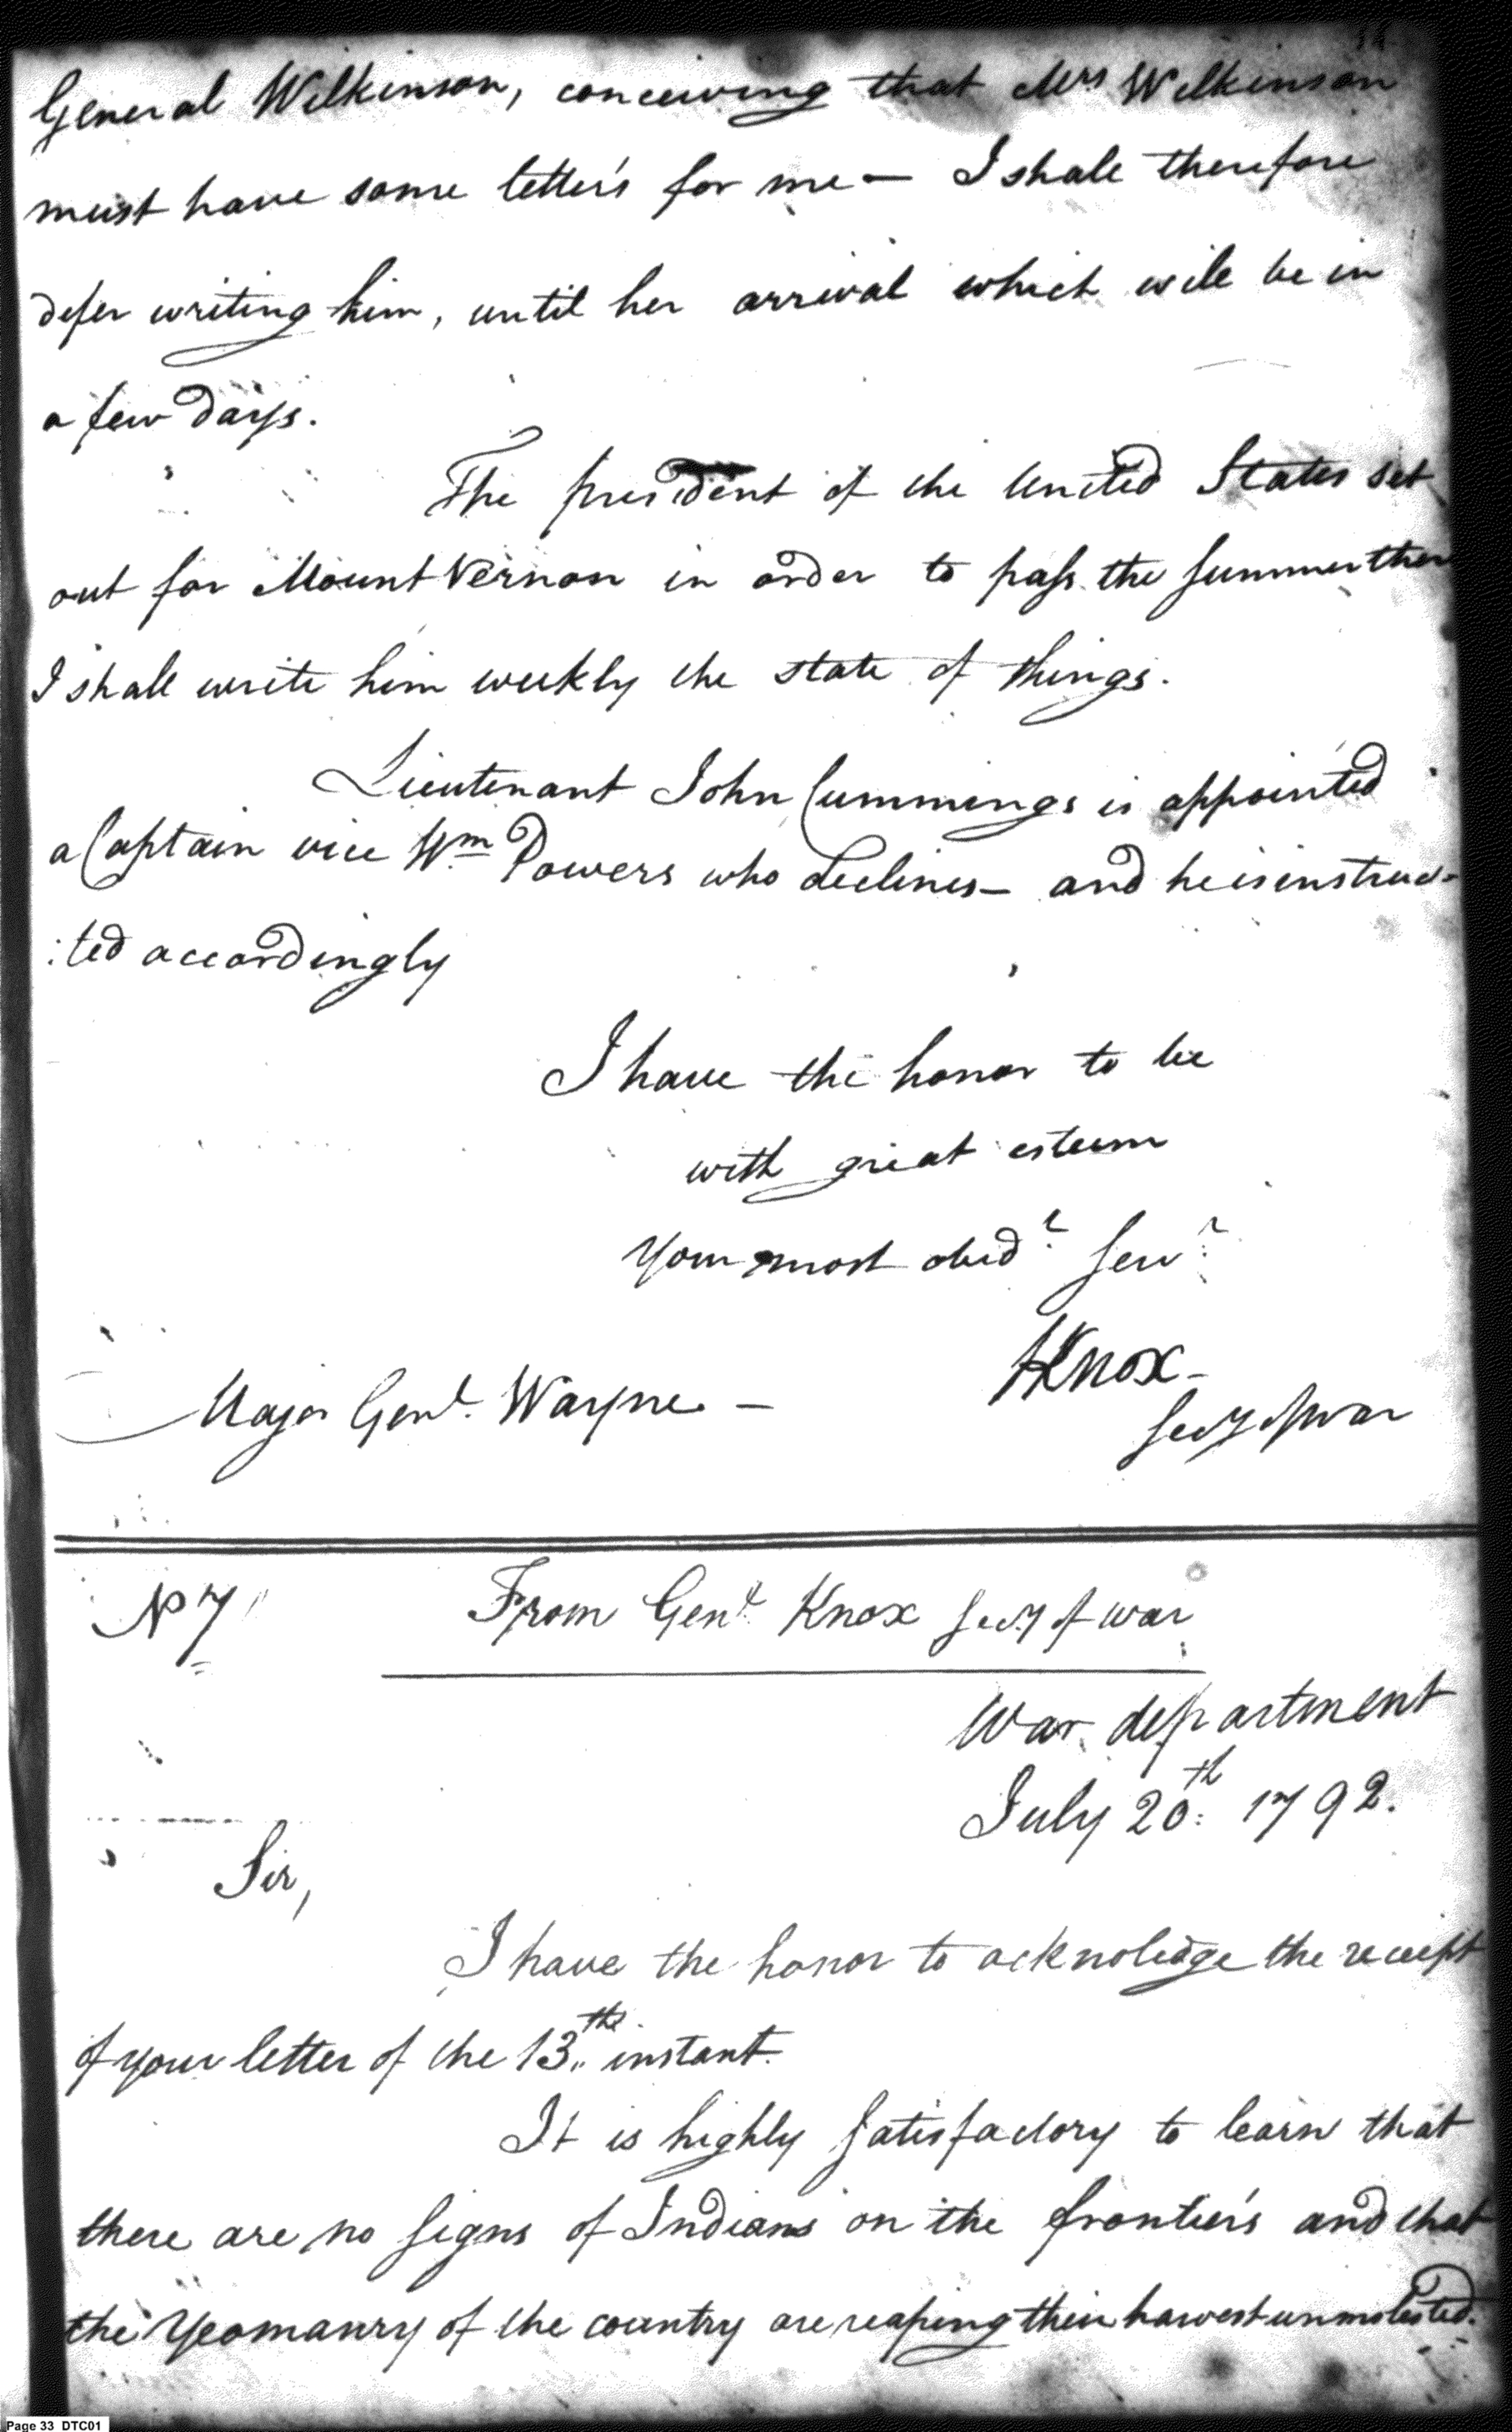 General Wilkinson, conceiving that Mrs Wilkinson
must have some letters for me — I shall therefore
defer writing him, until her arrival which will be in
a few days.
The president of the United States set
out for Mount Vernon in order to pass the summer then
I shall write him weekly the state of things.
Lieutenant John Cummings is appointed
a Captain vice Wm Powers who declines — and he is instruc-
:ted accordingly
I have the honor to be
with great esteem
Your most obedt Sert
HKnox —
Secy of war
Major Genl. Wayne —
No 7
From Genl Knox Secy of war
War department
July 20th 1792.
Sir,
I have the honor to acknoledge the receipt
of your letter of the 13th instant.
It is highly satisfactory to learn that
there are no signs of Indians on the frontiers and that
the Yeomanry of the country are reaping their harvest unmolested.
Page 33 DTC01